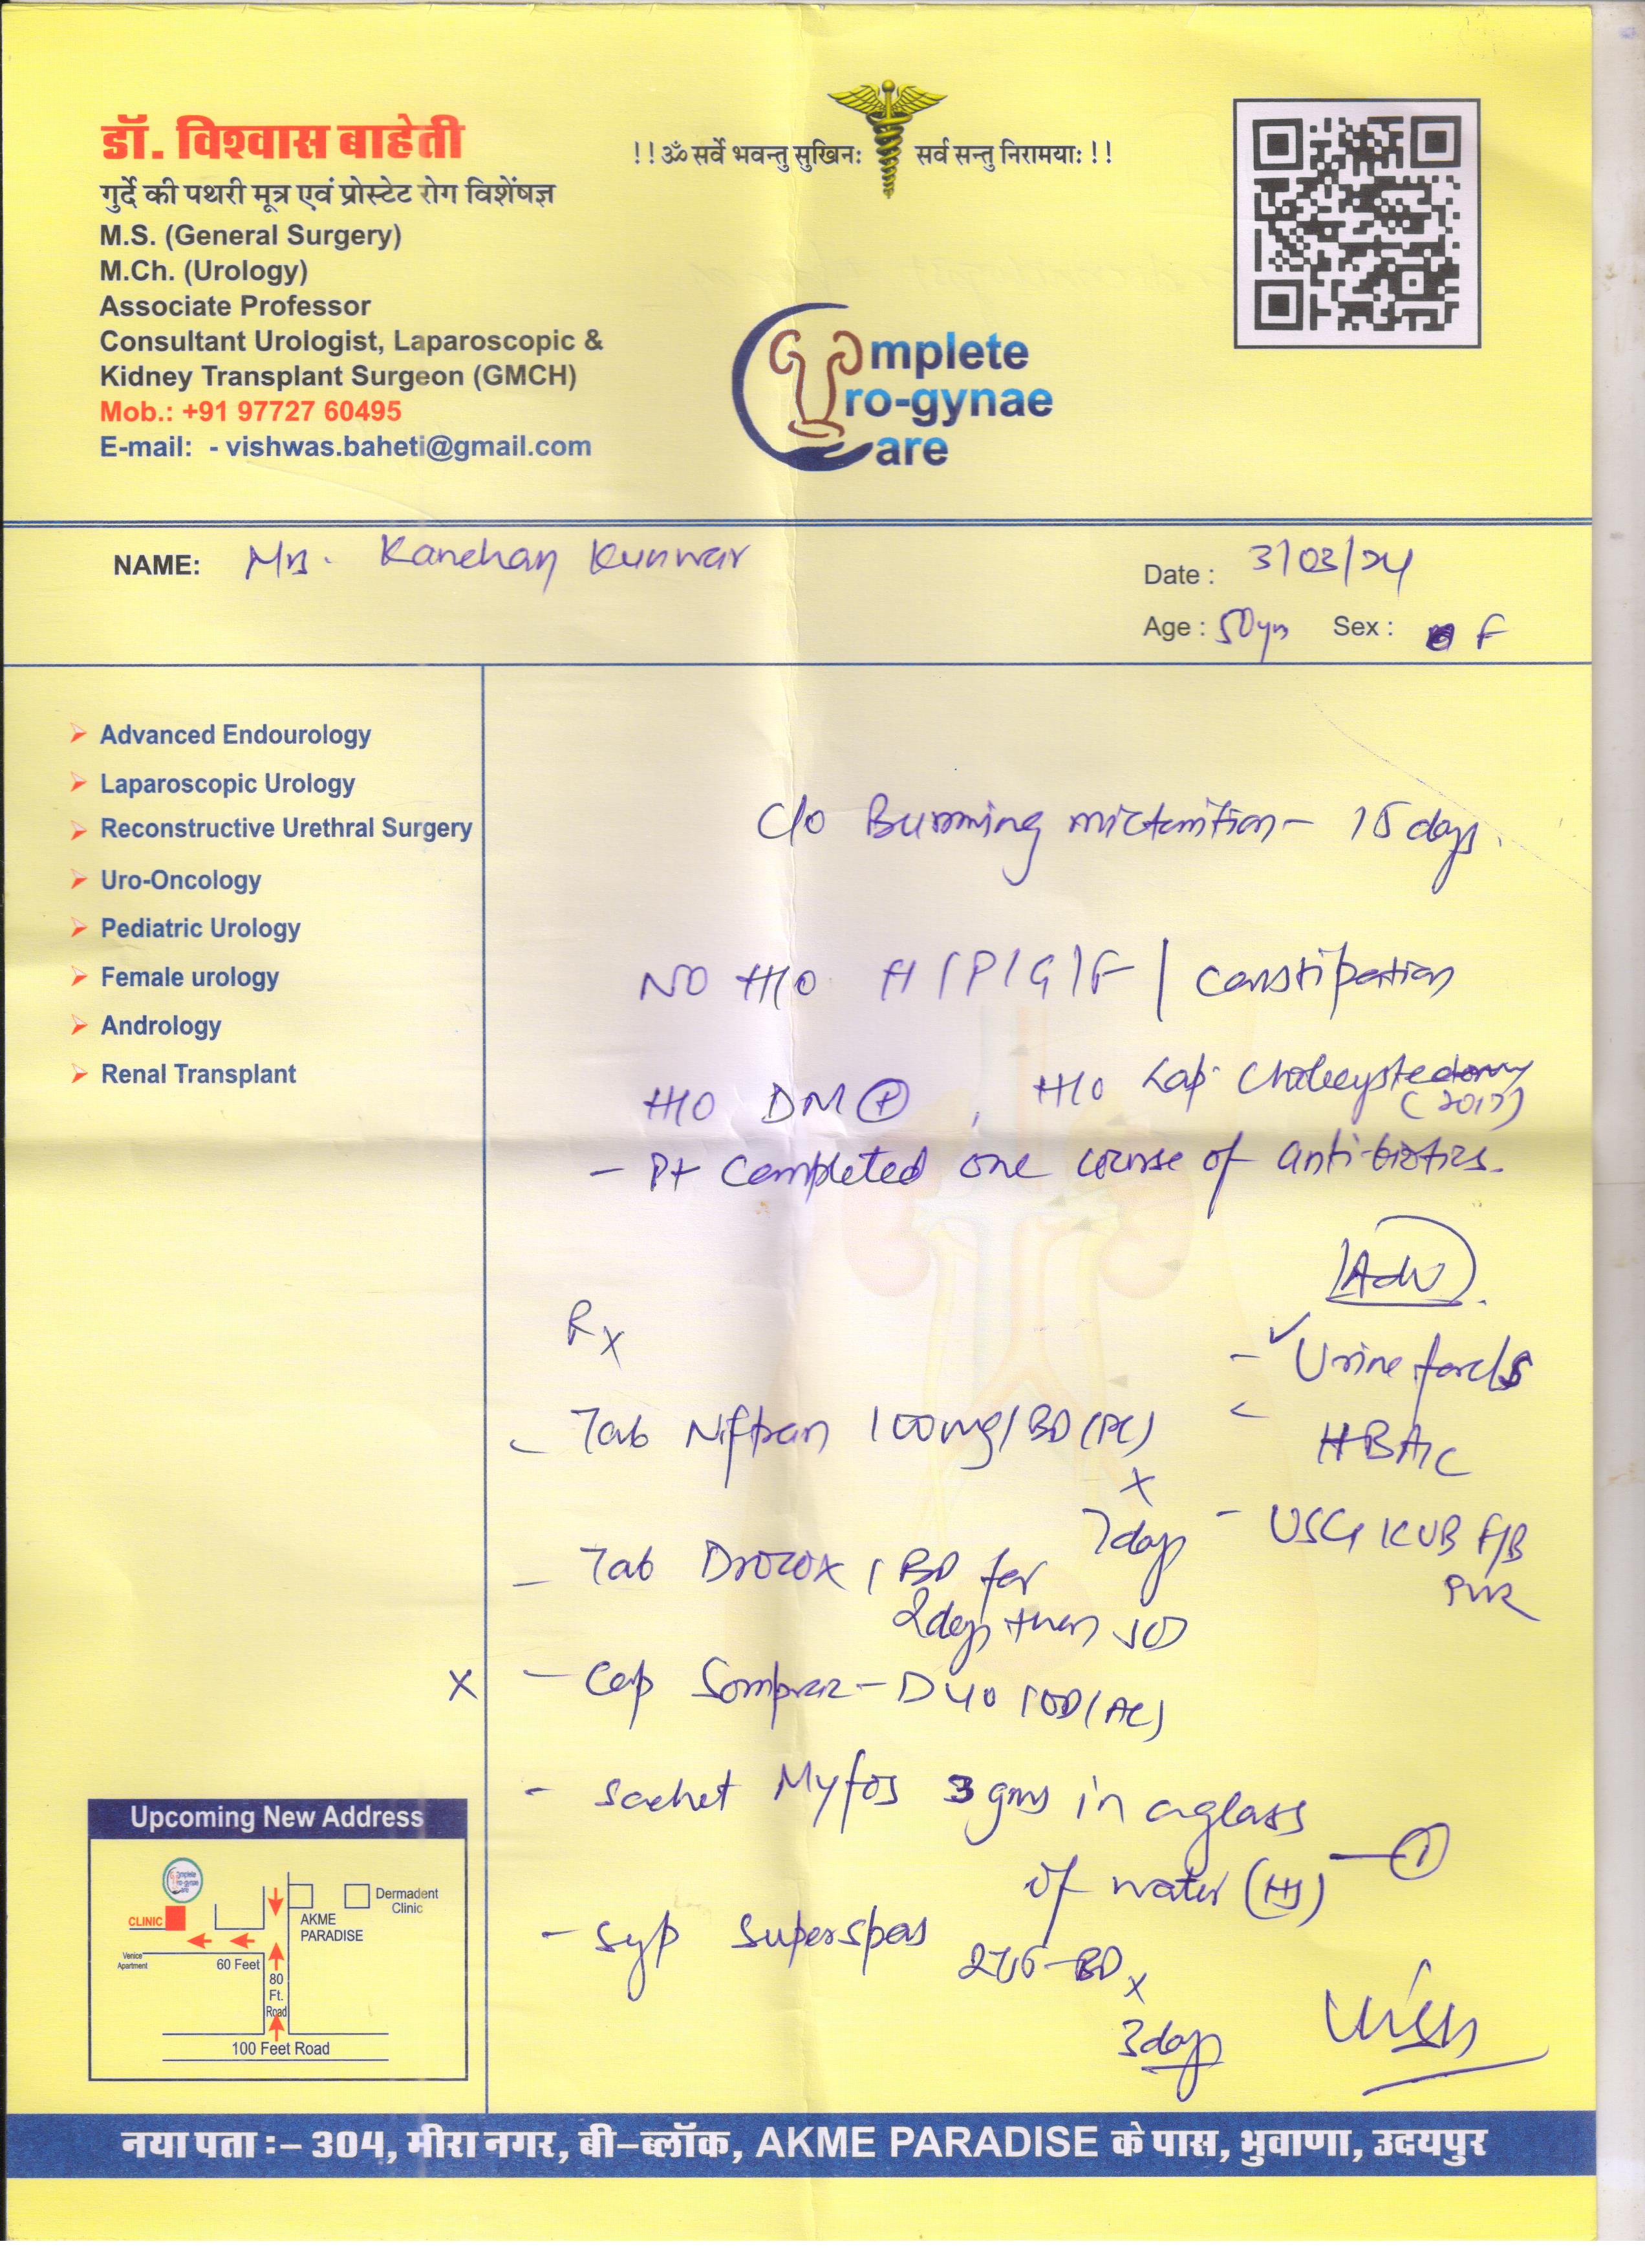 डॉ. विश्वास बाहेती
गुर्दे की पथरी मूत्र एवं प्रोस्टेट रोग विशेंषज्ञ
M.S. (General Surgery)
M.Ch. (Urology)
Associate Professor
Consultant Urologist, Laparoscopic &
Kidney Transplant Surgeon (GMCH)
Mob.: +91 97727 60495
E-mail: - vishwas.baheti@gmail.com
!!ॐ सर्वे भवन्तु सुखिनः सर्व सन्तु निरामयाः !!
omplete
ro-gynae
are
NAME: Mrs. Kanchan Kunwar
Date : 3/03/24
Age : 50yrs Sex : F
Advanced Endourology
Laparoscopic Urology
Reconstructive Urethral Surgery
Uro-Oncology
Pediatric Urology
Female urology
Andrology
Renal Transplant
C/o Burning micturition - 15 days.
NO H/O H/P/G/F / constipation
H/O DM (+), H/O Lap. Cholecystectomy
(2017)
- Pt completed one course of antibiotics.
Adv
- Urine for c/s
HBA1c
- USG KUB F/B
PVR
Rx
- Tab Niftran 100mg/BD (PC)
x
7 days
- Tab Drozox 1 BD for
2 days then SOS
x - Cap Sompraz-D 40 1OD (AC)
- Sachet Myfos 3 gms in a glass
of water (HS) - (1)
- Syp Superspas
2TSF-BD x
3 days
Upcoming New Address
CLINIC
AKME
PARADISE
Dermadent
Clinic
Venice
Apartment
60 Feet
80
Ft.
Road
100 Feet Road
नया पता :- 304, मीरा नगर, बी-ब्लॉक, AKME PARADISE के पास, भुवाणा, उदयपुर